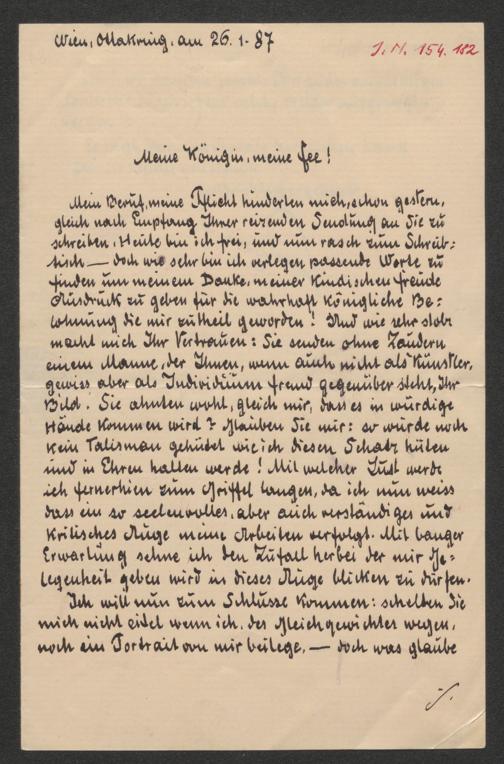 Wien, Ottakring, am 26. 1. 87
I. N. 154.182
Meine Königin, meine Fee!
Mein Beruf, meine Pflicht hinderten mich, schon gestern,
gleich nach Empfang Ihrer reizenden Sendung an Sie zu
schreiben. Heute bin ich frei, und nun rasch zum Schreib=
tisch — doch wie sehr bin ich verlegen passende Worte zu
finden um meinem Danke, meiner kindischen Freude
Ausdruck zu geben für die wahrhaft königliche Be=
lohnung die mir zutheil geworden! Und wie sehr stolz
macht mich Ihr Vertrauen: Sie senden ohne Zaudern
einem Manne, der Ihnen, wenn auch nicht als Künstler,
gewiss aber als Individuum fremd gegenüber steht, Ihr
Bild. Sie ahnten wohl, gleich mir, dass es in würdige
Hände kommen wird? Glauben Sie mir: so wurde noch
kein Talisman gehütet wie ich diesen Schatz hüten
und in Ehren halten werde! Mit welcher Lust werde
ich fernerhien zum Griffel langen, da ich nun weiss
dass ein so seelenvolles, aber auch verständiges und
kritisches Auge meine Arbeiten verfolgt. Mit banger
Erwartung sehne ich den Zufall herbei der mir Ge=
legenheit geben wird in dieses Auge blicken zu dürfen.
Ich will nun zum Schlusse kommen: schelten Sie
mich nicht eitel wenn ich, des Gleichgewichtes wegen,
noch ein Portrait von mir beilege, — doch was glaube